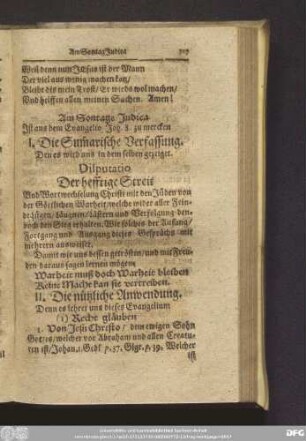 Am Sontag Judica
Weil denn nun JEsus ist der Mann
Der viel aus wenig machen kan/
Bleibt dis mein Trost/ Er wirds wol machen/
Und helffen allen meinen Sachen. Amen!
Am Sontage Judica
Ist aus dem Evangelio Joh. 8. zu mercken
I. Die Sum̃arische Verfassung.
Den es wird uns in dem selben gezeiget.
Disputatio
Der hefftige Streit
Und Wortwechselung Christi mit den Jüden von
der Göttlichen Warheit/welche wider aller Feinde
Lügen/ Lästern und Verfolgung dennoch
den Sieg erhalten. Wie solches der Anfang/
Fortgang und Ausgang dieses Gesprächs mit
mehrern ausweiset.
Damit wir uns dessen getrösten/ und mit Freuden
daraus sagen lernen mögen
Warheit muß doch Warheit bleiben
Keine Macht kan sie vertreiben.
II. Die nützliche Anwendung.
Denn es lehret uns dieses Evangelium
(1) Recht gläuben
1. Von JEsu Christo/ dem ewigen Sohn
Gottes/ welcher vor Abraham und allen Creaturen
ist/ Johan. p. 37. p. 39. Welcher
ist